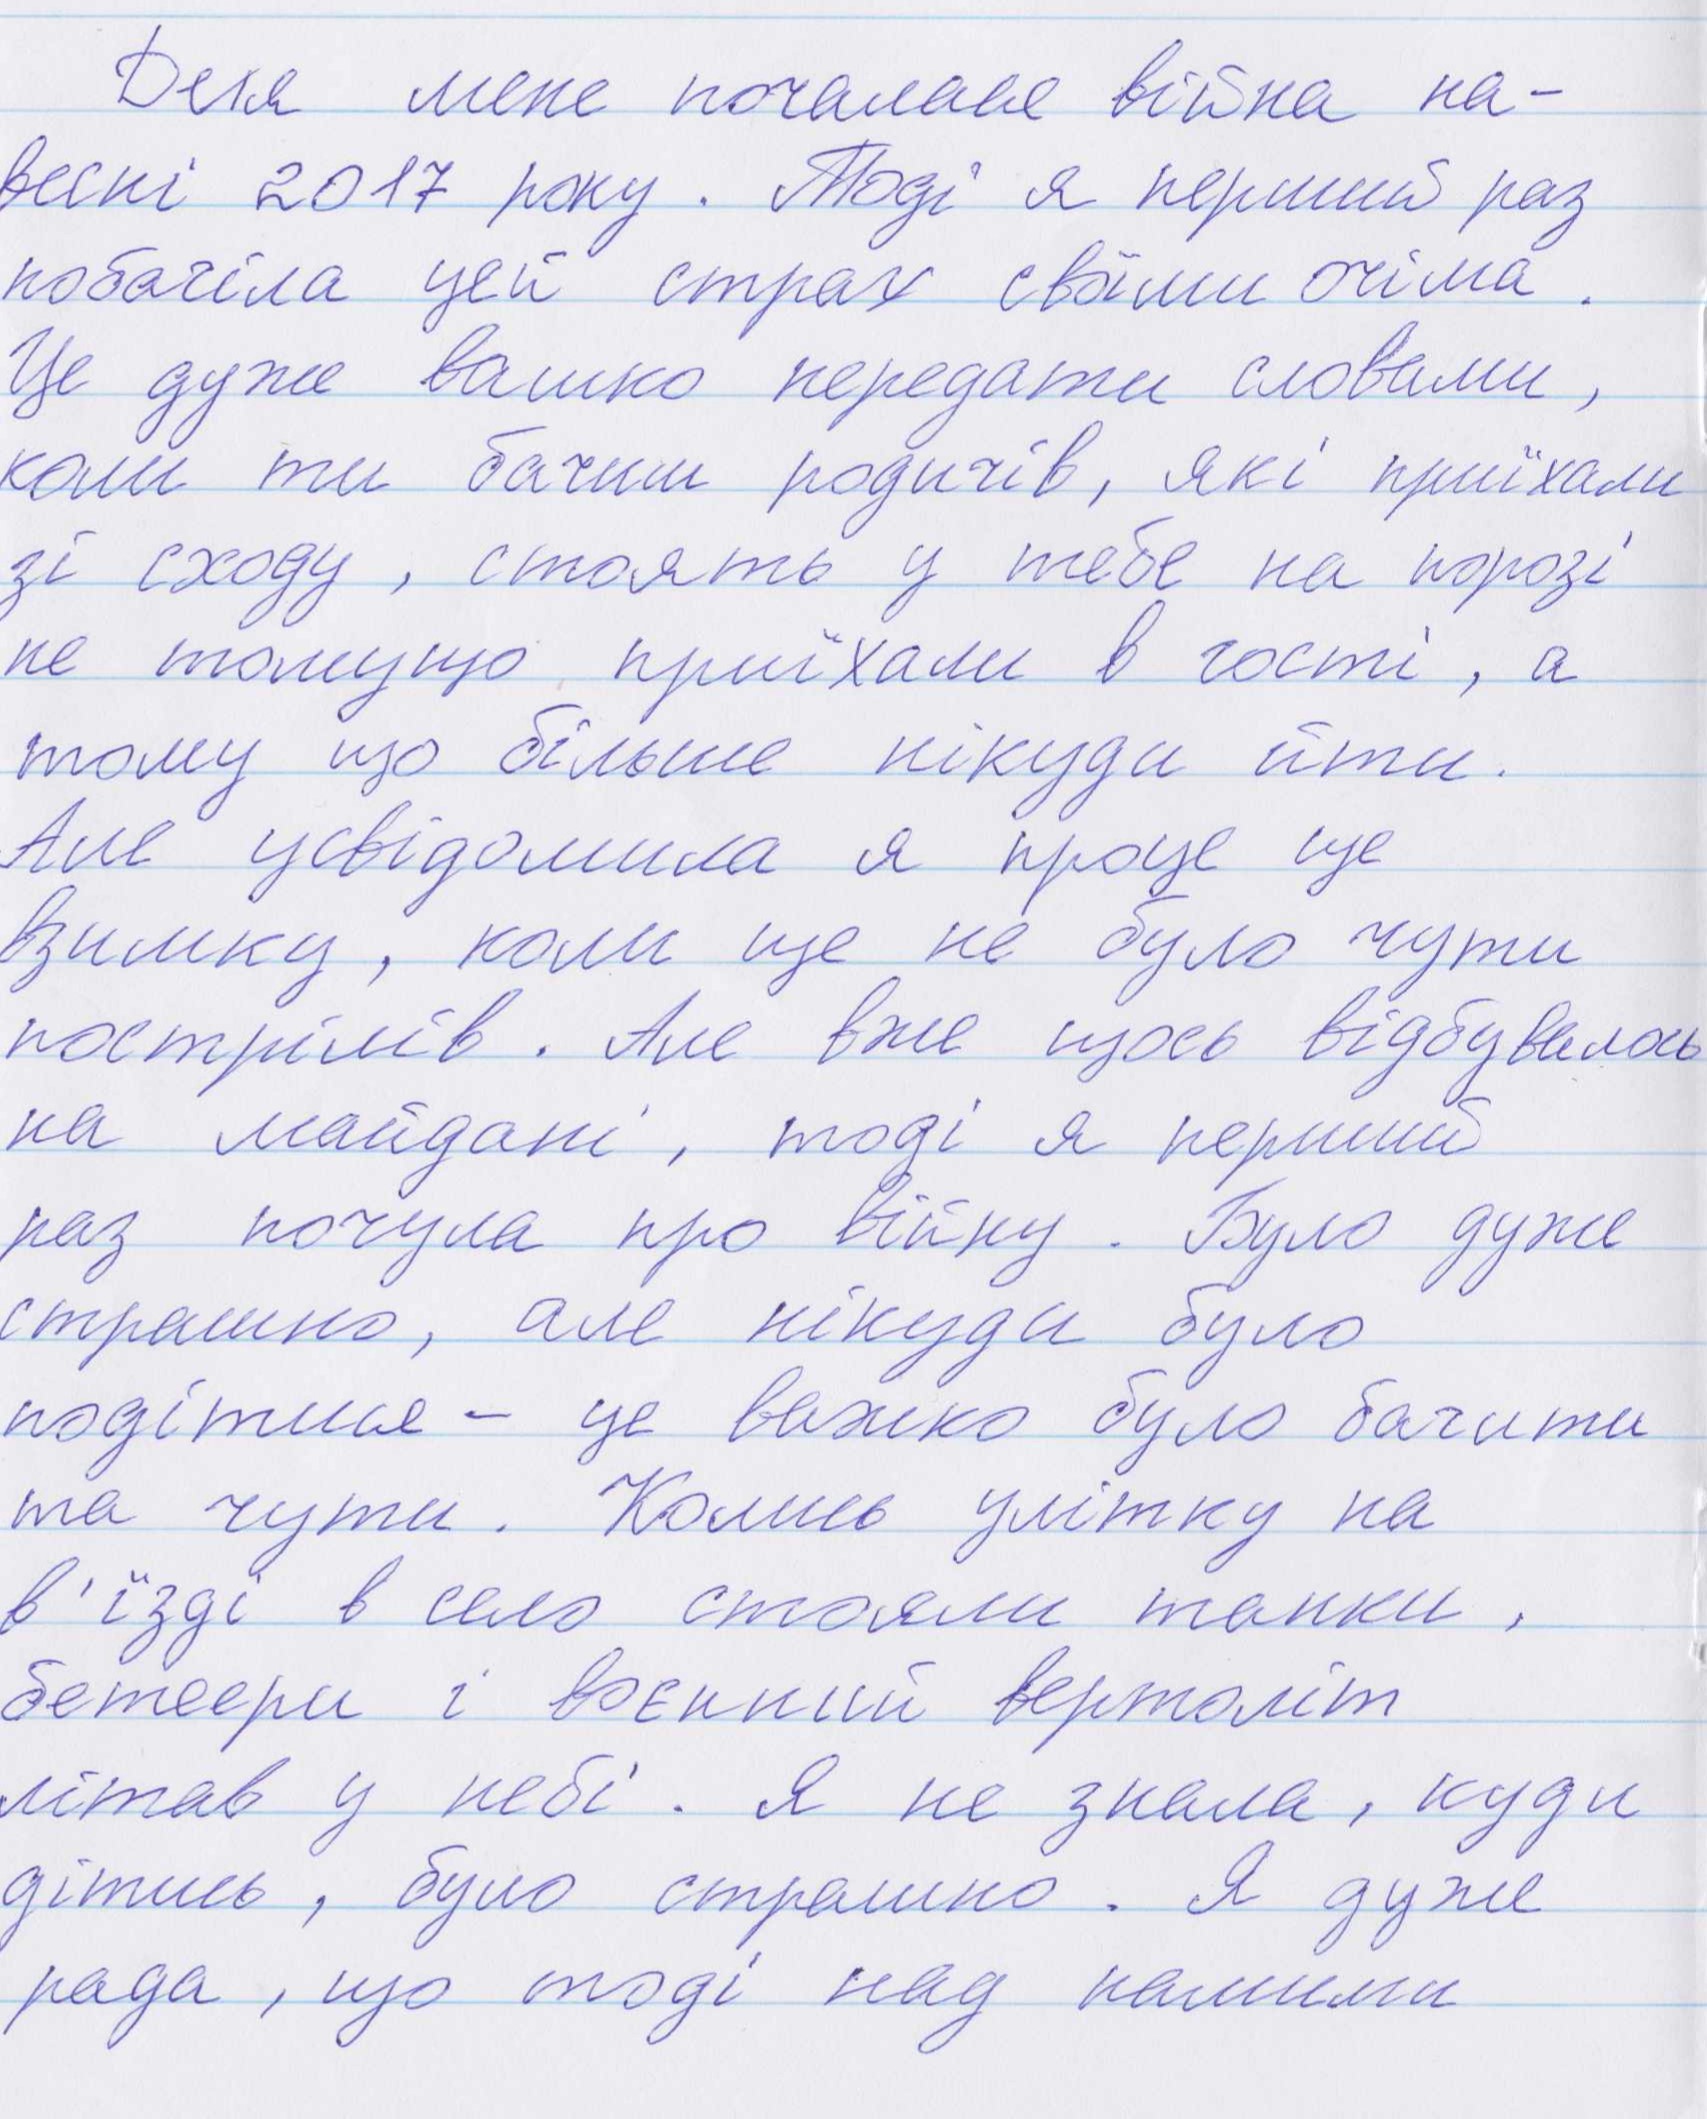 Для мене почалася війна на-
весні 2017 року. Тоді я перший раз
побачіла цей страх своїми очіма.
Це дуже вашко передати словами,
коли ти бачиш родичів, які приїхали
зі сходу, стоять у тебе на порозі
не томущо приїхали в гості, а
тому що більше нікуди йти.
Але усвідомила я проце ще
взимку, коли ще не було чути
пострілів. Але вже щось відбувалось
на майдані, тоді я перший
раз почула про війну. Було дуже
страшно, але нікуди було
подітися - це важко було бачити
та чути. Колись улітку на
в'їзді в село стояли танки,
бетеери і воєнний вертоліт
літав у небі. Я не знала, куди
дітись, було страшно. Я дуже
рада, що тоді над нашими